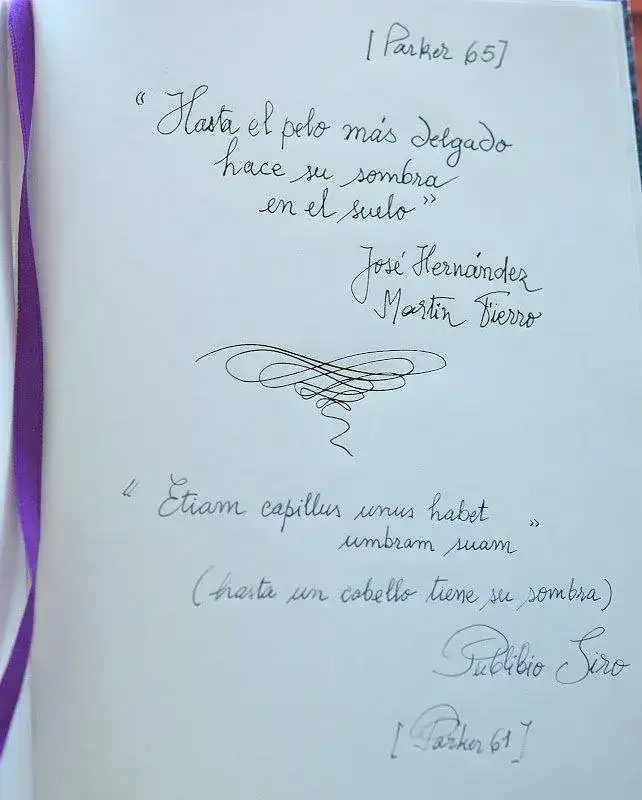 [Parker 65]
“Hasta el pelo más delgado
hace su sombra
en el suelo”
José Hernández
Martín Fierro
“Etiam capillus unus habet
umbram suam”
(hasta un cabello tiene su sombra)
Publibio Siro
[Parker 61]